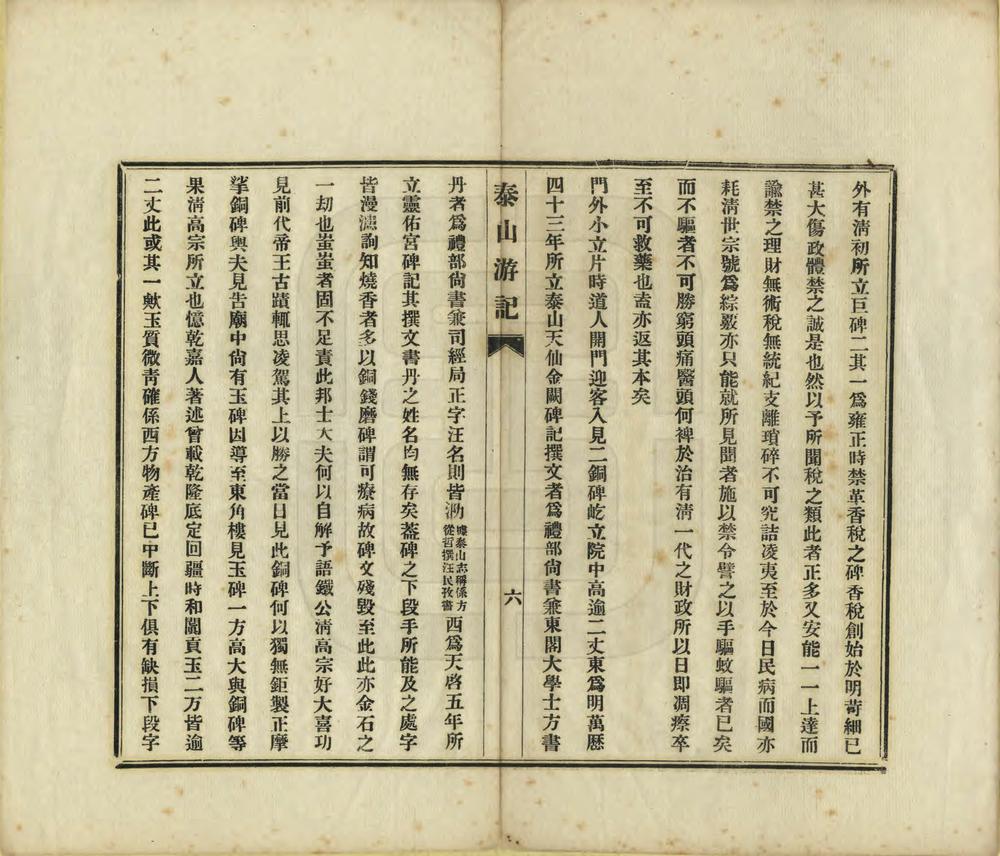 外有淸初所立巨碑二其一爲雍正時禁革香稅之碑香稅創始於明苛細已
甚大傷政體禁之誠是也然以予所聞稅之類此者正多又安能一一上達而
諭禁之理財無術稅無統紀支離瑣碎不可究詰凌夷至於今日民病而國亦
耗淸世宗號爲綜覈亦只能就所見聞者施以禁令譬之以手驅蚊驅者已矣
而不驅者不可勝窮頭痛醫頭何裨於治有淸一代之財政所以日即凋瘵卒
至不可救藥也盍亦返其本矣
門外小立片時道人開門迎客入見二銅碑屹立院中高逾二丈東爲明萬歷
四十三年所立泰山天仙金闕碑記撰文者爲禮部尙書兼東閣大學士方書
泰山游記
六
丹者爲禮部尙書兼司經局正字汪名則皆泐據泰山志稱係方從哲撰汪民孜書西爲天啓五年所
立靈佑宮碑記其撰文書丹之姓名均無存矣蓋碑之下段手所能及之處字
皆漫漶詢知燒香者多以銅錢磨碑謂可療病故碑文殘毀至此此亦金石之
一劫也蚩蚩者固不足責此邦士大夫何以自解予語鐵公淸高宗好大喜功
見前代帝王古蹟輒思凌駕其上以勝之當日見此銅碑何以獨無鉅製正摩
挲銅碑輿夫見告廟中尙有玉碑因導至東角樓見玉碑一方高大與銅碑等
果淸高宗所立也憶乾嘉人著述曾載乾隆底定回疆時和闐貢玉二方皆逾
二丈此或其一歟玉質微靑確係西方物產碑已中斷上下俱有缺損下段字